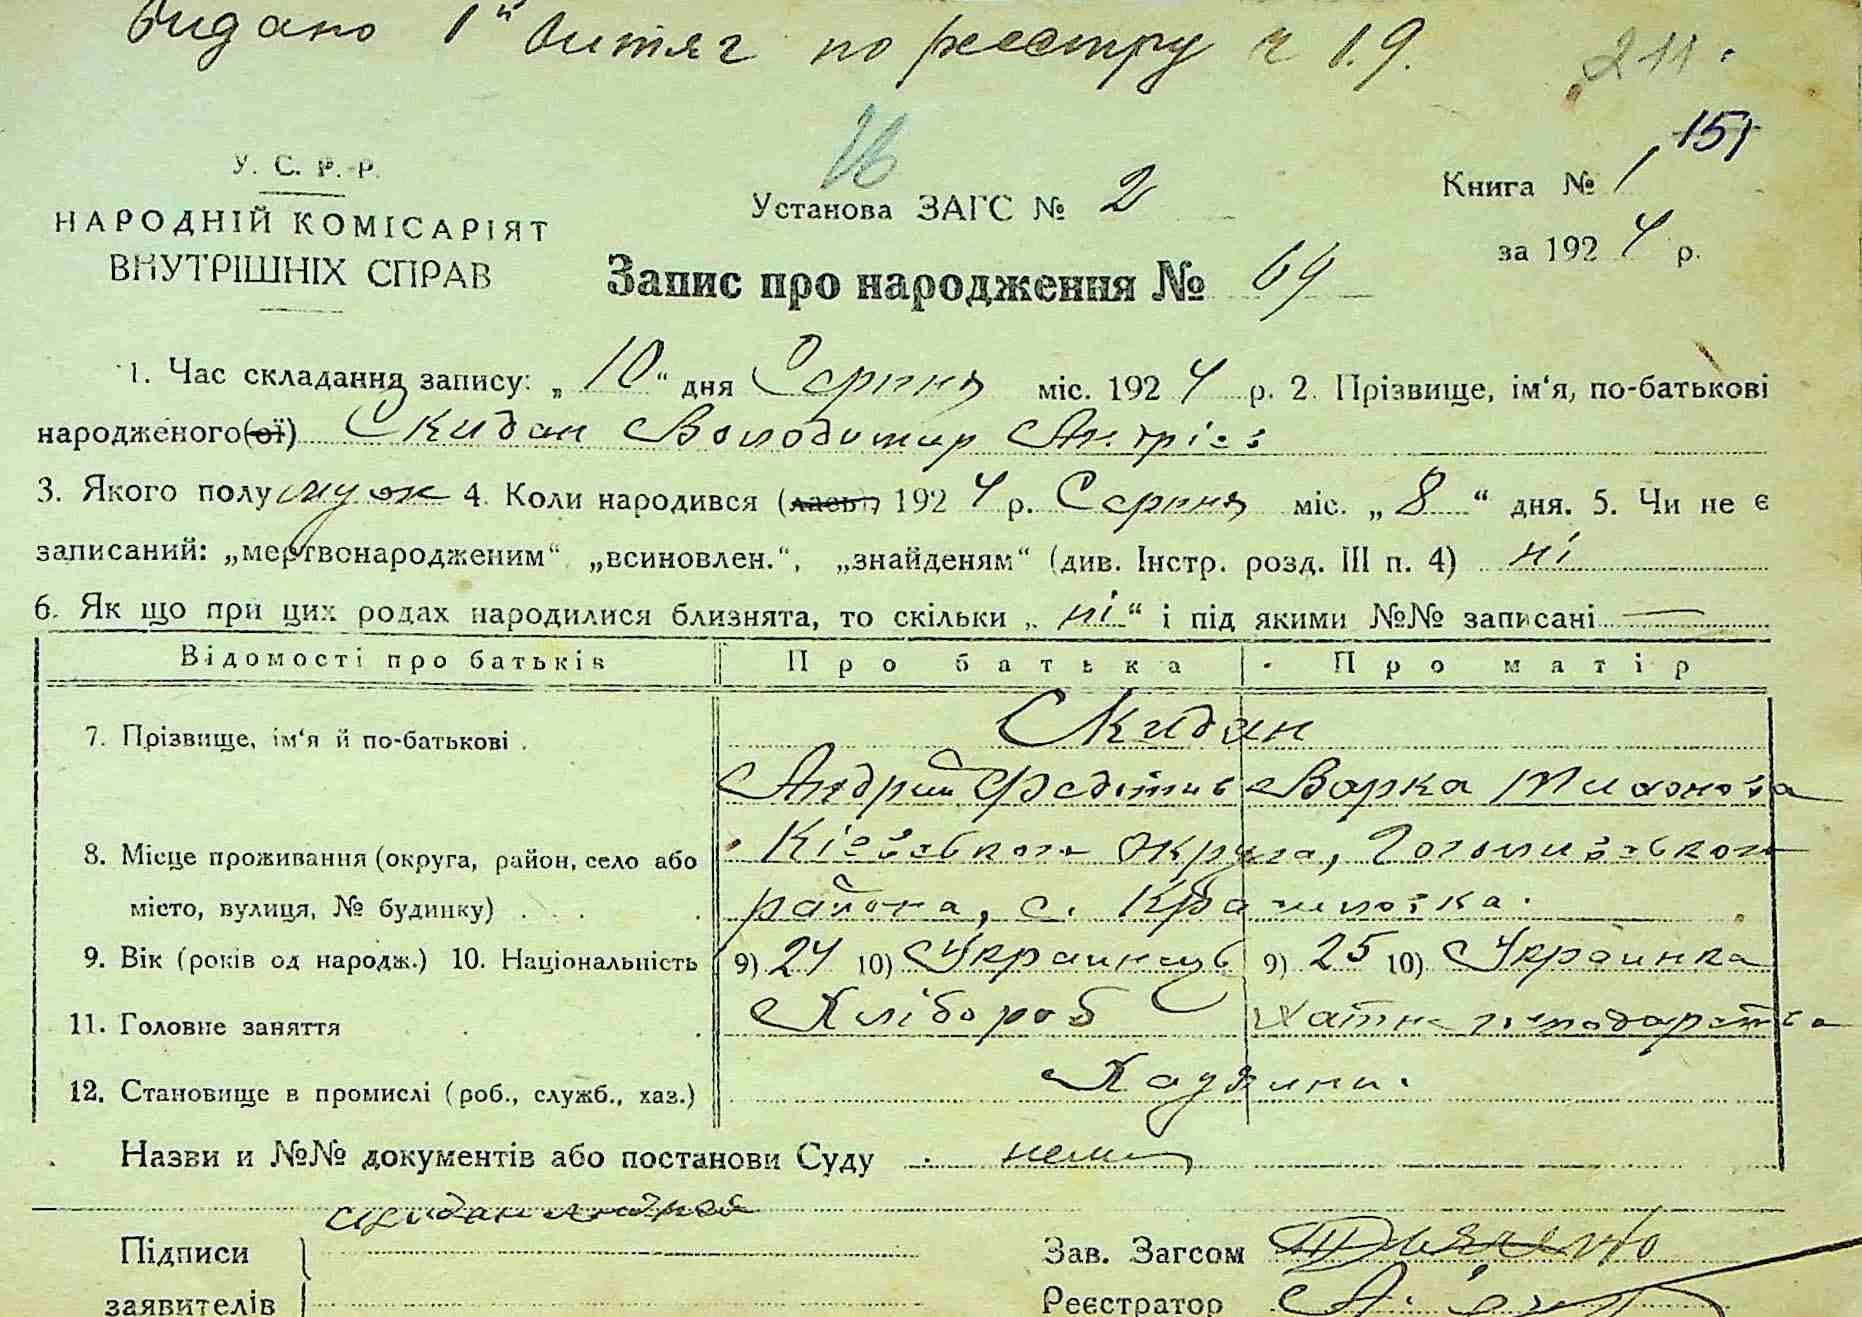 Видано 1й витяг по реєстру ч 19.
211.
151
У. С. Р. Р.
НАРОДНІЙ КОМІСАРІЯТ
ВНУТРІШНІХ СПРАВ
Установа ЗАГС № 2
Книга № 1
за 1924 р.
Запис про народження № 69
1. Час складання запису: „10“ дня Серпня міс. 1924 р. 2. Прізвище, ім‘я, по-батькові
народженого(ої) Скидан Володимир Андріев
3. Якого полу муж 4. Коли народився (лась) 1924 р. Серпня міс. „8“ дня. 5. Чи не є
записаний: „мертвонародженим“ „всиновлен.“, „знайденям“ (див. Інстр. розд. III п. 4) ні
6. Як що при цих родах народилися близнята, то скільки „ні“ і під якими №№ записані —
Відомості про батьків Про батька Про матір
7. Прізвище, ім‘я й по-батькові Скидан
Андрий Федотив Варка
8. Місце проживання (округа, район, село або Київського округа,
місто, вулиця, № будинку) района, с.
9. Вік (років од народж.) 10. Національність 9) 24 10) Украинець 9) 25 10) Украинка
11. Головне заняття Хлібороб Хатнє господарство
12. Становище в промислі (роб., служб., хаз.) Хазяини.
Назви и №№ документів або постанови Суду нема
Скидан Андрей
Підписи
заявителів
Зав. Загсом
Реєстратор